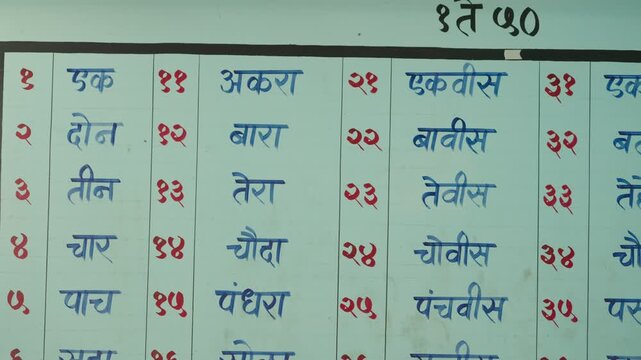 १ ते ५०
१ एक ११ अकरा २१ एकवीस ३१
२ दोन १२ बारा २२ बावीस ३२
३ तीन १३ तेरा २३ तेवीस ३३
४ चार १४ चौदा २४ चोवीस ३४
५ पाच १५ पंधरा २५ पंचवीस ३५